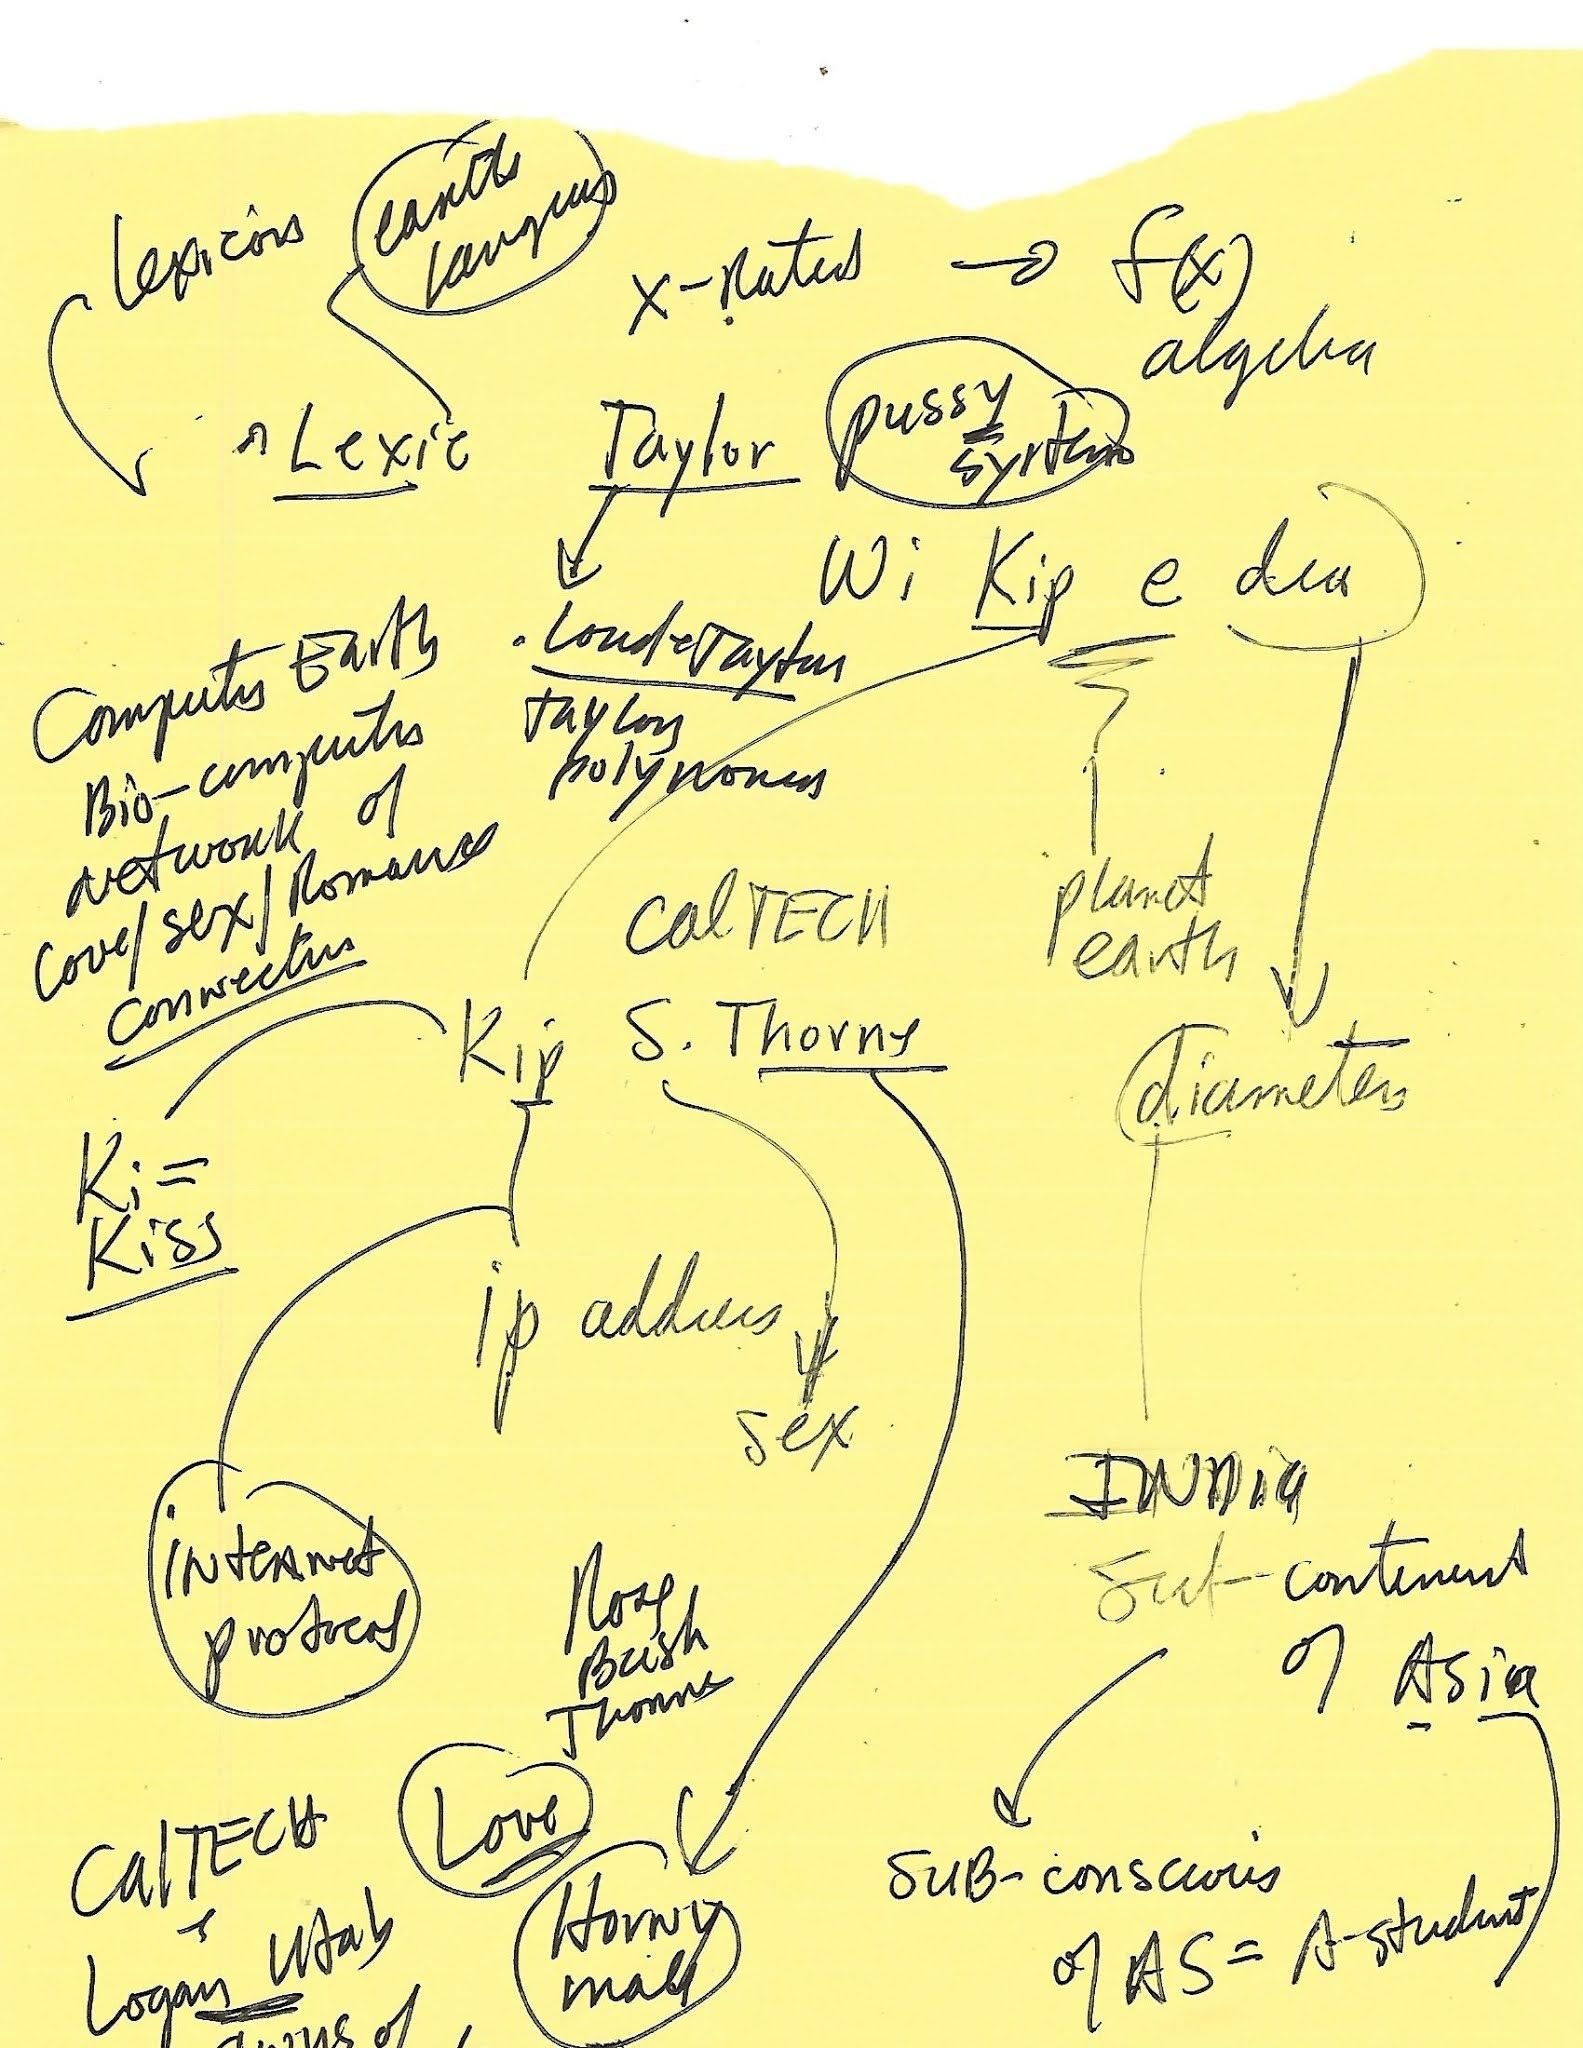 Lexicons
earth
languages
X-Rated → f(x)
algebra
Lexie Taylor
pussy
system
Wi Kip e dia
Computer Earth
Bio-computer
network of
Love/sex/Romance
connection
Taylor
polynomials
planet
earth
CalTECH
Kip S. Thorne
diameter
Ki =
Kiss
ip address
sex
internet
protocol
INDia
Sub-continent
of Asia
Rose
Bush
Thorne
Love
Horny
male
SUB-conscious
of AS = A-student
CalTECH
Logan Utah